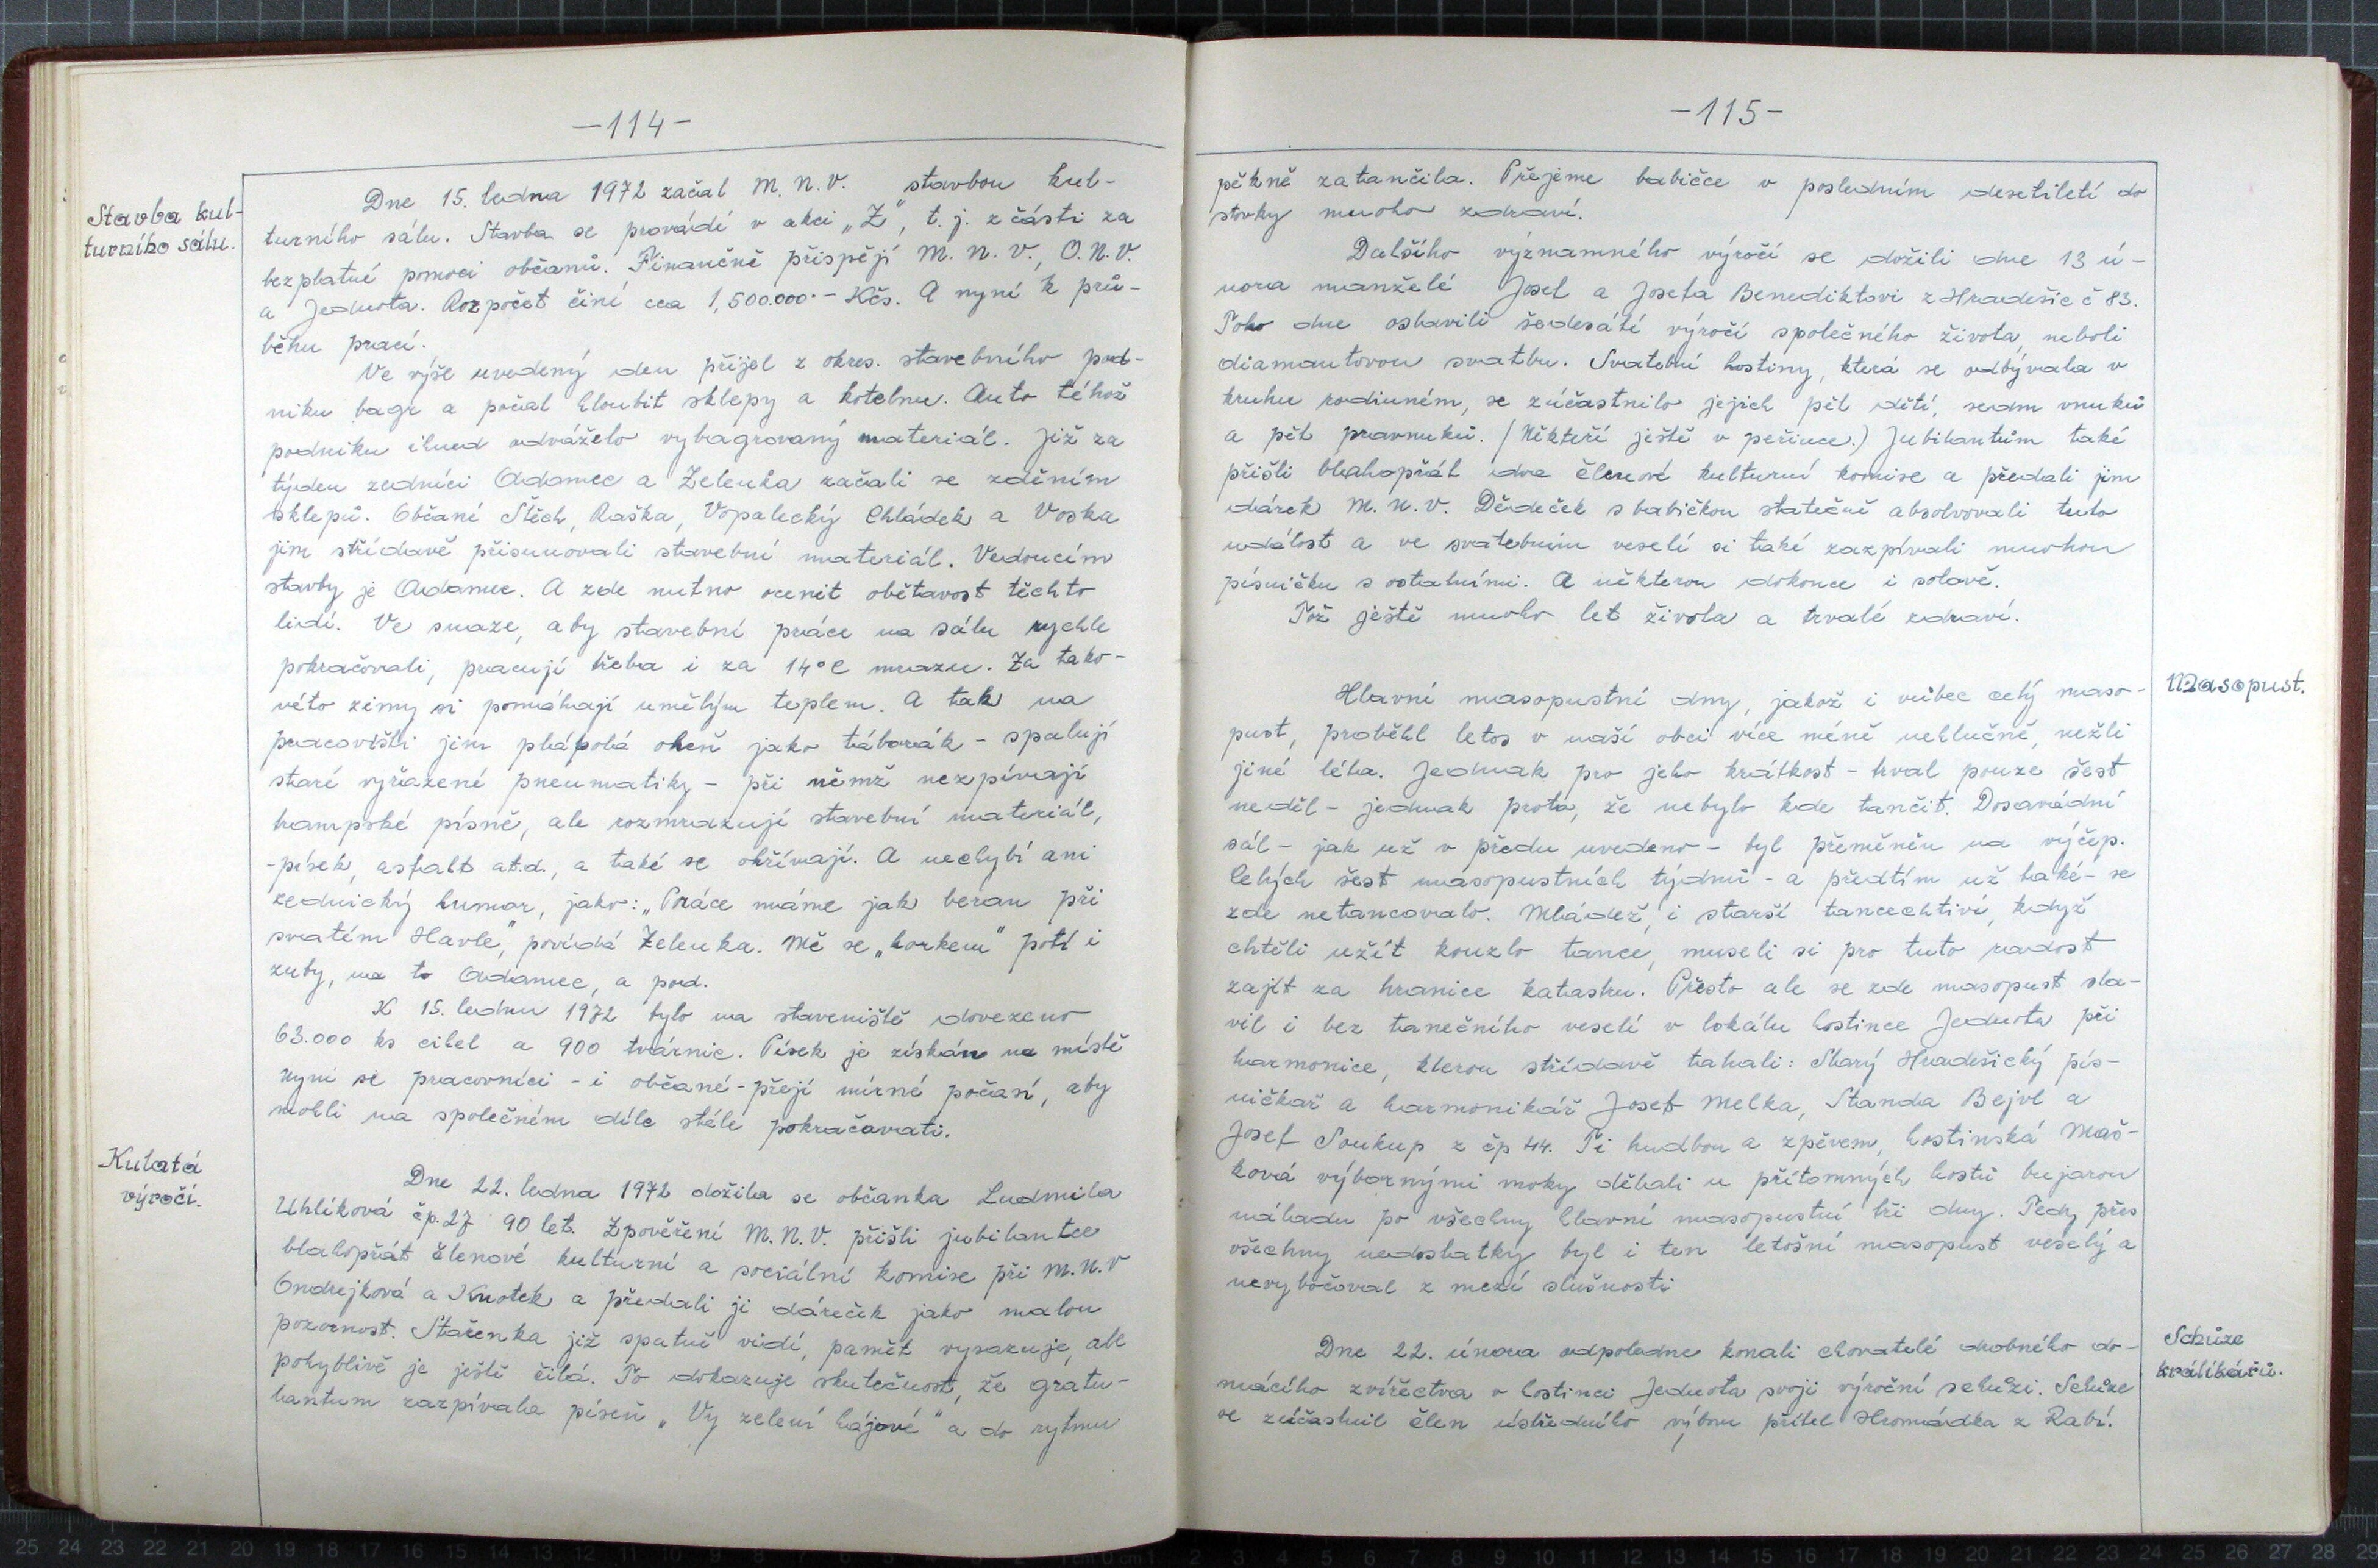 -114-
Stavba kul-
turního sálu.
Dne 15. ledna 1972 začal M. N. V. stavbou kul-
turního sálu. Stavba se provádí v akci „Z", t. j. z části za
bezplatné pomoci občanů. Finančně přispějí M. N. V., O. N. V.
a Jednota. Rozpočet činí cca 1,500.000.- Kčs. A nyní k prů-
běhu prací.
Ve výše uvedený den přijel z okres. stavebního pod-
niku bagr a počal hloubit sklepy a kotelnu. Auto téhož
podniku ihned odváželo vybagrovaný materiál. Již za
týden zedníci Adamec a Zelenka začali se zděním
sklepů. Občané Štěch, Raška, Vopalecký Chládek a Voska
jim střídavě přisunovali stavební materiál. Vedoucím
stavby je Adamec. A zde nutno ocenit obětavost těchto
lidí. Ve snaze, aby stavební práce na sálu rychle
pokračovali, pracují třeba i za 14°C mrazu. Za tako-
véto zimy si pomáhají umělým teplem. A tak na
pracovišti jim plápolá oheň jako táborák - spalují
staré vyřazené pneumatiky - při němž nezpívají
trampské písně, ale rozmrazují stavební materiál,
-písek, asfalt at.d., a také se ohřívají. A nechybí ani
zednický humor, jako: „Práce máme jak beran při
svatém Havle", povídá Zelenka. Mě se „horkem" potí i
zuby, na to Adamec, a pod.
K 15. lednu 1972 bylo na staveniště dovezeno
63.000 ks cihel a 900 tvárnic. Písek je získán na místě
Nyní si pracovníci - i občané - přejí mírné počasí, aby
mohli na společném díle stále pokračovati.
Kulatá
výročí.
Dne 22. ledna 1972 dožila se občanka Ludmila
Uhlíková čp. 27 90 let. Z pověření M. N. V. přišli jubilantce
blahopřát členové kulturní a sociální komise při M. N. V
Ondrejková a Knotek a předali jí dáreček jako malou
pozornost. Stařenka již spatně vidí, pamět vysazuje, ale
pohyblivě je ještě čilá. To dokazuje skutečnost, že gratu-
lantum zazpívala píseň „Vy zelení hájové" a do rytmu
-115-
pěkně zatančila. Přejeme babičce v posledním desetiletí do
stovky mnoho zdraví.
Dalšího významného výročí se dožili dne 13 ú-
nora manželé Josef a Josefa Benediktovi z Hradešic č 83.
Toho dne oslavili šedesáté výročí společného života, neboli
diamantovou svatbu. Svatební hostiny, která se odbývala v
kruhu rodinném, se zúčastnilo jejich pět dětí, sedm vnuků
a pět pravnuků. (Někteří ještě v peřince.) Jubilantům také
přišli blahopřát dva členové kulturní komise a předali jim
dárek M. N. V. Dědeček s babičkou statečně absolvovali tuto
událost a ve svatebním veselí si také zazpívali mnohou
písničku s ostatními. A některou dokonce i solově.
Tož ještě mnoho let života a trvalé zdraví.
Masopust.
Hlavní masopustní dny, jakož i vůbec celý maso-
pust, proběhl letos v naší obci více méně nehlučně, nežli
jiné léta. Jednak pro jeho krátkost - trval pouze šest
neděl - jednak proto, že nebylo kde tančit. Dosavádní
sál - jak už v předu uvedeno - byl přeměněn na výčep.
Celých šest masopustních týdnů - a předtím už také - se
zde netancovalo. Mládež, i starší tancechtiví, když
chtěli užít kouzlo tance, museli si pro tuto radost
zajít za hranice katastru. Přesto ale se zde masopust sla-
vil i bez tanečního veselí v lokálu hostince Jednota při
harmonice, kterou střídavě tahali: Starý Hradešický pís-
ničkář a harmonikář Josef Melka, Standa Bejvl a
Josef Soukup z čp 44. Ti hudbou a zpěvem, hostinská Maš-
ková výbornými moky dělali u přítomných hostů bujarou
náladu po všechny hlavní masopustní tři dny. Tedy přes
všechny nedostatky byl i ten letošní masopust veselý a
nevybočoval z mezí slušnosti
Schůze
králíkářů.
Dne 22. února odpoledne konali chovatelé drobného do-
mácího zvířectva v hostinci Jednota svoji výroční schůzi. Schůze
se zúčastnil člen ústředního výboru přítel Hromádka z Rabí.